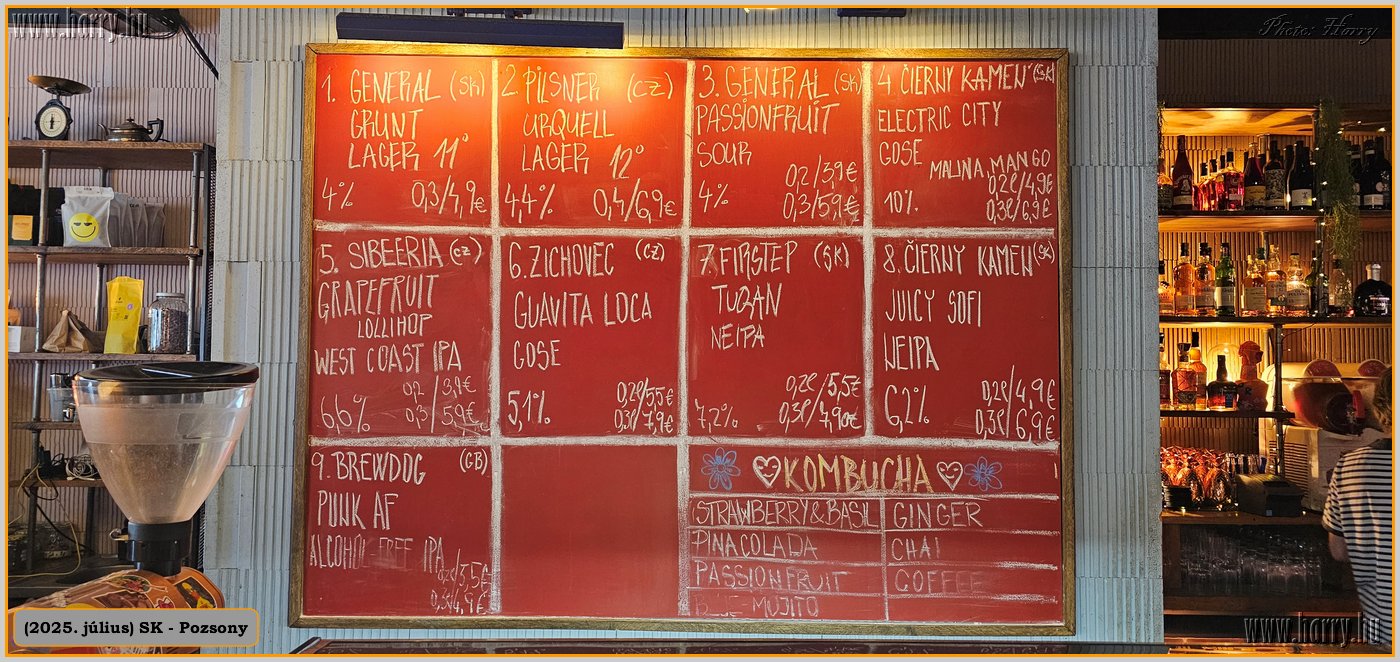 www.horry.hu
Photo: Horry
1. GENERAL (SK)
GRUNT
LAGER 11°
4% 0,3/4,9€
2 PILSNER (CZ)
URQUELL
LAGER 12°
4,4% 0,4/6,9€
3. GENERAL (SK)
PASSIONFRUIT
SOUR
0,2/3,9€
4% 0,3/5,9€
4 ČIERNY KAMEŇ (SK)
ELECTRIC CITY
GOSE
MALINA, MANGO
0,2l/4,9€
10% 0,3l/6,9€
5. SIBEERIA (CZ)
GRAPEFRUIT
LOLLIHOP
WEST COAST IPA
0,2/3,9€
6,6% 0,3/5,9€
6. ZICHOVEC (CZ)
GUAVITA LOCA
GOSE
0,2l/5,5€
5,1% 0,3l/7,9€
7. FIRSTEP (SK)
TUZAN
NEIPA
0,2l/5,5€
7,2% 0,3l/7,90€
8. ČIERNY KAMEŇ (SK)
JUICY SOFI
NEIPA
0,2l/4,9€
6,2% 0,3l/6,9€
9. BREWDOG (GB)
PUNK AF
ALCOHOL-FREE IPA
0,2l/3,5€
0,3l/4,9€
KOMBUCHA
STRAWBERRY & BASIL GINGER
PINACOLADA CHAI
PASSIONFRUIT COFFEE
MOJITO
(2025. július) SK - Pozsony
www.horry.hu